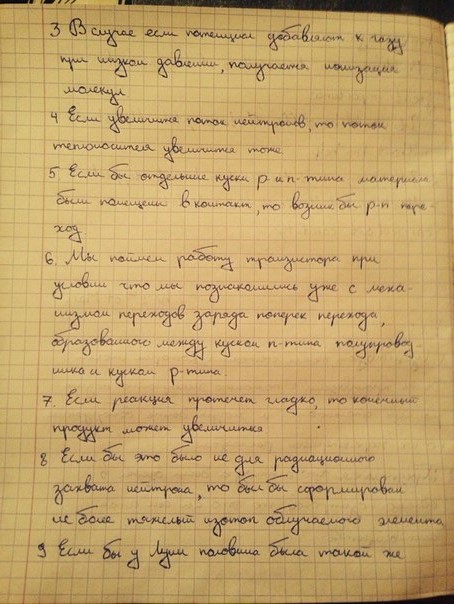 3 В случае если потенциал добавляют к газу
при низком давлении, получается ионизация
молекул
4 Если увеличится поток нейтронов, то поток
теплоносителя увеличится тоже
5. Если бы отдельные куски p и n-типа материала
были помещены в контакт, то возник бы p-n пере-
ход.
6. Мы поймем работу транзистора при
условии что мы познакомились уже с меха-
низмом переходов заряда поперек перехода,
образованного между куском n-типа полупровод-
ника и куском p-типа.
7. Если реакция протечет гладко, то конечный
продукт может увеличиться
8 Если бы это было не для радиационного
захвата нейтрона, то был бы сформирован
не более тяжелый изотоп облучаемого элемента
9 Если бы у Луны половина была такой же